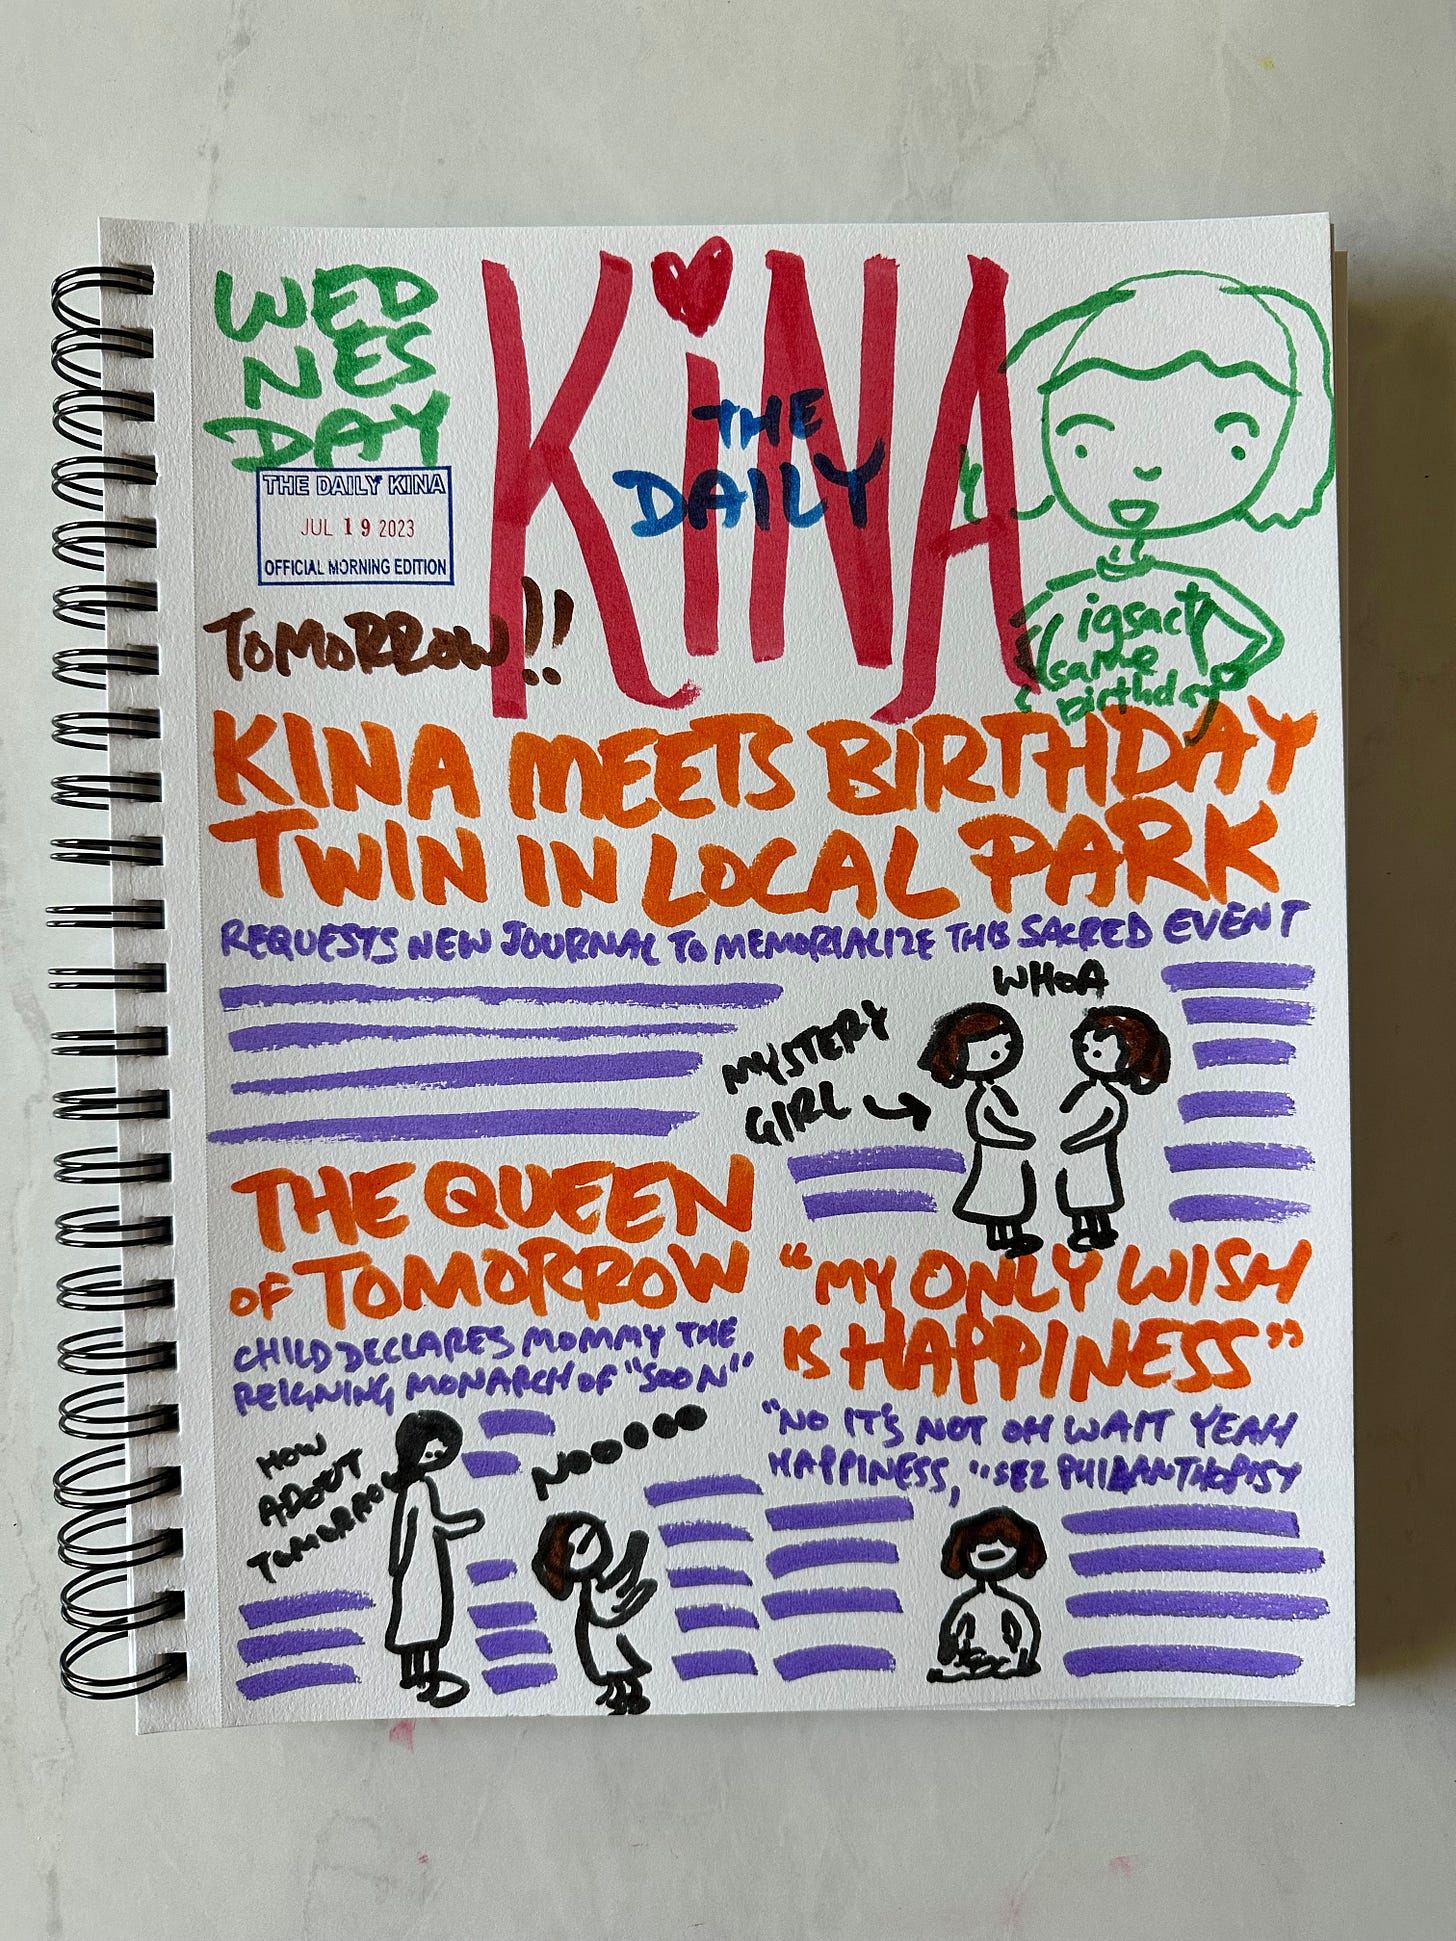 WED
NES
DAY
THE DAILY KINA
JUL 19 2023
OFFICIAL MORNING EDITION
KiNA
THE
DAILY
igsact
same
birthday
TOMORROW!!
KINA MEETS BIRTHDAY
TWIN IN LOCAL PARK
REQUESTS NEW JOURNAL TO MEMORIALIZE THIS SACRED EVENT
WHOA
MYSTERY
GIRL
THE QUEEN
OF TOMORROW
CHILD DECLARES MOMMY THE
REIGNING MONARCH OF "SOON"
HOW
ABOUT
TOMORROW
NOOOOOO
"MY ONLY WISH
IS HAPPINESS"
"NO IT'S NOT OH WAIT YEAH
HAPPINESS," SEZ PHILANTHOPISY